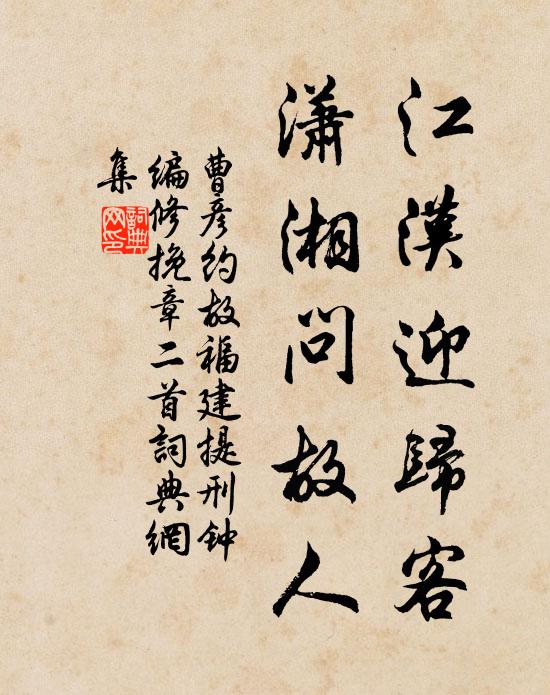 江漢迎歸客
瀟湘問故人
曹彥約故福建提刑鈡
編修挽章二首詞典網
集
詞典
网印